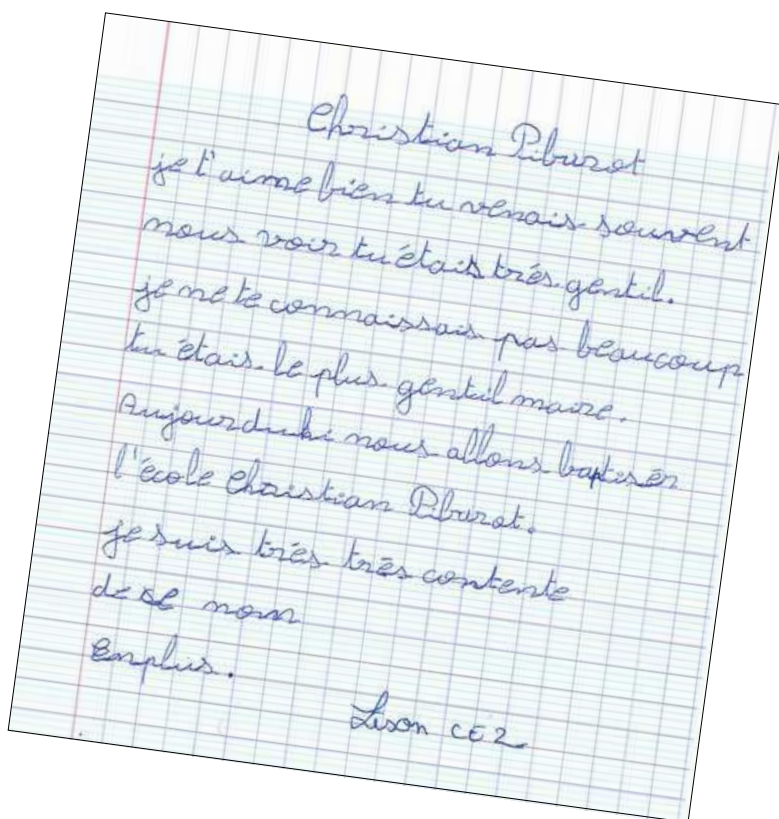 Christian Piburot
je t'aime bien tu venais souvent
nous voir tu étais très gentil.
je ne te connaissais pas beaucoup
tu étais le plus gentil maire.
Aujourduhi nous allons baptisér
l'école Christian Piburot.
je suis très très contente
de se nom
Enplus.
Lison CE2